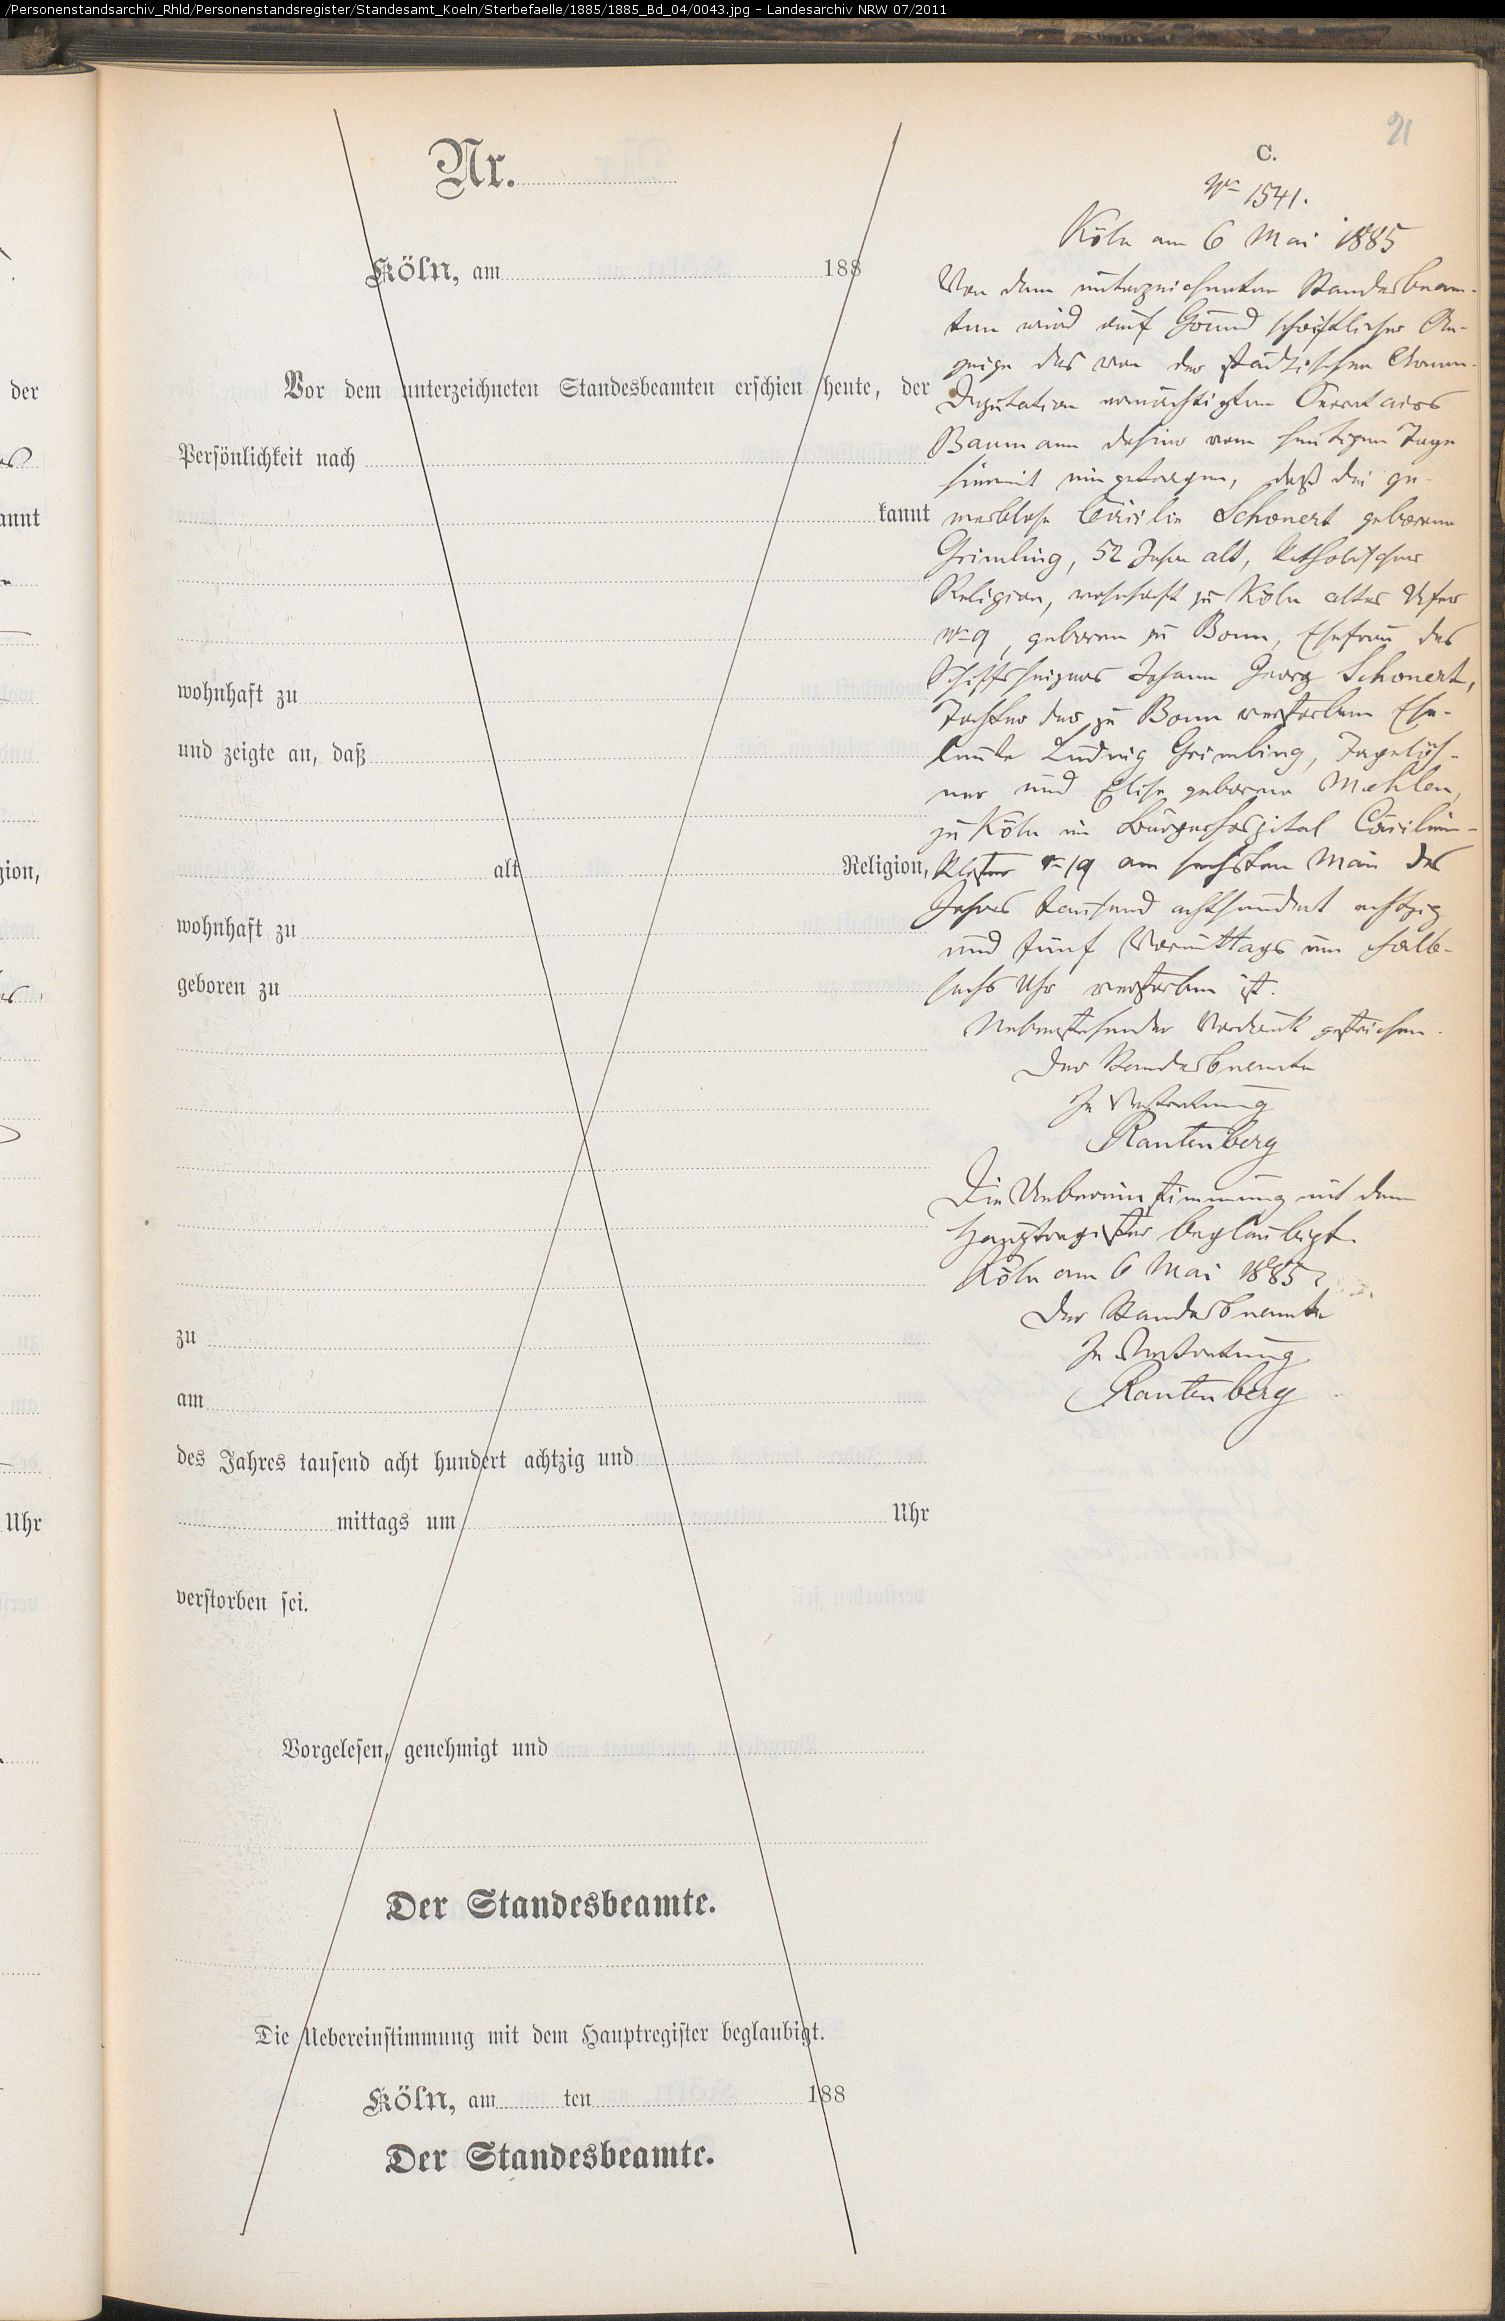 /Personenstandsarchiv_Rhld/Personenstandsregister/Standesamt_Koeln/Sterbefaelle/1885/1885_Bd_04/0043.jpg - Landesarchiv NRW 07/2011
21
C.
Nr.
Köln, am 188
Vor dem unterzeichneten Standesbeamten erschien heute, der
Persönlichkeit nach
kannt
wohnhaft zu
und zeigte an, daß
alt Religion,
wohnhaft zu
geboren zu
zu
am
des Jahres tausend acht hundert achtzig und
mittags um Uhr
verstorben sei.
Vorgelesen, genehmigt und
Der Standesbeamte.
Die Uebereinstimmung mit dem Hauptregister beglaubigt.
Köln, am ten 188
Der Standesbeamte.
No 1541.
Köln am 6 Mai 1885
Von dem unterzeichneten Standesbeam-
ten wird auf Grund schriftlicher An-
zeige des von der städtischen Armen-
Deputation ermächtigten Secretairs
Baumann dahier vom heutigen Tage
hiermit eingetragen, daß die ge-
werblose Cäcilie Schonert geborene
Grimling, 52 Jahre alt, katholischer
Religion, wohnhaft zu Köln altes Ufer
No 9, geboren zu Bonn, Ehefrau des
Schiffseigners Johann Georg Schonert,
Tochter der zu Bonn verstorbenen Ehe-
leute Ludwig Grimling, Tagelöh-
ner und Elise geborene Mehlen,
zu Köln im Bürgerhospital Cäcilien-
kloster No 19 am sechsten Mai des
Jahres tausend achthundert achtzig
und fünf Vormittags um halb-
sechs Uhr verstorben ist.
Nebenstehender Vordruck gestrichen.
Der Standesbeamte
In Vertretung
Rautenberg
Die Uebereinstimmung mit dem
Hauptregister beglaubigt.
Köln am 6 Mai 1885
Der Standesbeamte
In Vertretung
Rautenberg
der
annt
gion,
Uhr